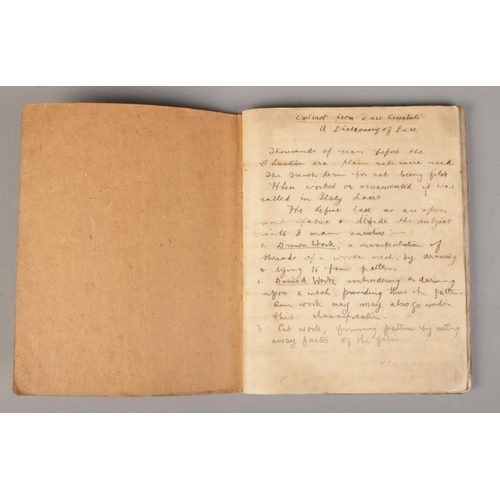 Extract from "Lace
A Dictionary of Lace
Thousands of years before the
Christian era plain nets were used
The French term for net being filet
When worked or ornamented it was
called in Italy Lacis
We define lace as an open
work fabric & divide the subject
into main varieties :-
1. Drawn Work, a manipulation of
threads of a woven mesh, by drawing
& tying to form pattern
2. Darned Work, embroidering or darning
upon a mesh, providing thus the pattern
Run work may also go under
this classification.
3 Cut work, forming pattern by cutting
away parts of the